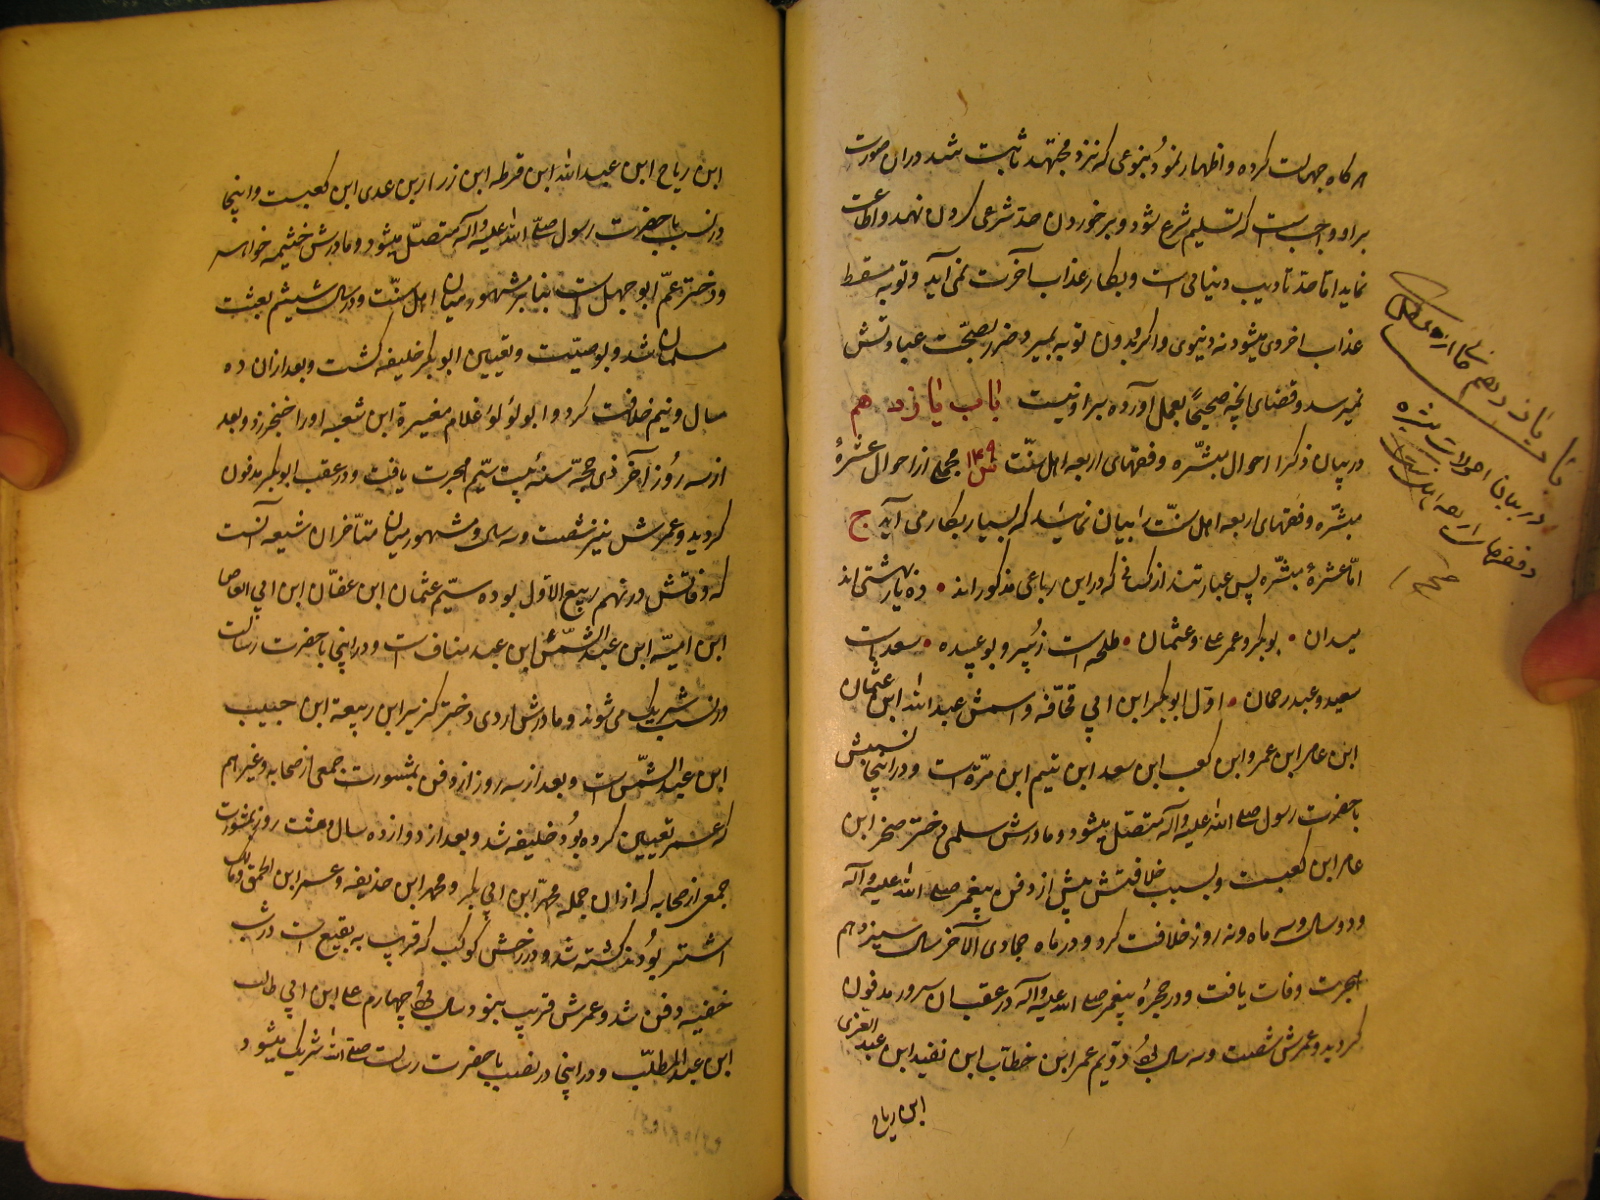 هرگاه جهالت کرده و اظهار نمود بنوعی که نزد مجتهد ثابت شد در آن صورت
بر او واجبست که تسلیم شرع شود و بر خوردن حد شرعی گردن نهد و اطاعت
نماید اما حد تادیب دنیائی است و بکار عذاب آخرت نمی آید و توبه مسقط
عذاب اخروی میشود نه دنیوی و اگر بدون توبه بمیرد ضرر بصحت عباداتش
نمیرسد و قضای آنچه صحیحا بعمل آورده بر او نیست باب یازدهم
در بیان ذکر احوال مبشره و فقهای اربعه اهل سنت س ۱۴۹ مجملی از احوال عشرهٔ
مبشره و فقهای اربعه اهل سنت را بیان نمائید که بسیار بکار می آید ج
اما عشرهٔ مبشره پس عبارتند از کسانی که در این رباعی مذکوراند • ده یار بهشتی اند
میدان • بوبکر و عمر علی و عثمان • طلحه است زبیر و بوعبیده • سعد است
سعید و عبدرحمان • اول ابوبکر ابن ابی قحافه و اسمش عبدالله ابن عثمان
ابن عامر ابن عمرو ابن کعب ابن سعد ابن تیم ابن مرة است و در اینجا نسبش
با حضرت رسول صلی الله علیه وآله متصل میشود و مادرش سلمی دختر صخر ابن
عامر ابن کعبست و بسبب خلافتش پیش از دفن پیغمبر صلی الله علیه وآله
و دو سال و سه ماه و نه روز خلافت کرد و در ماه جمادی الآخر سال سیزدهم
هجرت وفات یافت و در حجرهٔ پیغمبر صلی الله علیه وآله در عقب آن سرور مدفون
گردید و عمرش شصت و سه سال بود دویم عمر ابن خطاب ابن نفید ابن عبد العزی
ابن ریاح
باب یازدهم
در بیان احوالات مبشره
و فقهای اربعه اهل سنت
ابن ریاح ابن عبدالله ابن قرطه ابن زراربن عدی ابن کعبست و اینجا
در نسب با حضرت رسول صلی الله علیه وآله متصل میشود و مادرش خثیمه خواهر
و دختر عم ابوجهل است بنا بر مشهور میان اهل سنت و در سال ششم بعثت
مسلمان شد و بوصیت و تعیین ابوبکر خلیفه گشت و بعد از آن ده
سال و نیم خلافت کرد و ابو لؤلؤ غلام مغیرة ابن شعبه او را خنجر زد و بعد
از سه روز آخر ذی حجه سنه بیست سیم هجرت یافت و در عقب ابوبکر مدفون
گردید و عمرش نیز شصت و سه سال و مشهور میان متأخران شیعه آنست
که وفاتش در نهم ربیع الاول بوده سیم عثمان ابن عفان ابن ابی العاص
ابن امیه ابن عبدالشمس ابن عبد مناف است و در اینجا با حضرت رسالت
در نسب شریک می شوند و مادرش اردی دختر کزیر ابن ربیعة ابن حبیب
ابن عبد الشمس است و بعد از سه روز از دفن بمشورت جمعی از صحابه و غیرهم
که عمر تعیین کرده بود خلیفه شد و بعد از دوازده سال و هشت روز بمشورت
جمعی از صحابه که از آن جمله محمد ابن ابی بکر و محمد ابن حذیفه و عمر ابن الحمق و مالک
اشتر بودند کشته شد و در حش کوکب که قریب به بقیع است در شب
خفیه دفن شد و عمرش قریب بنود سال بود چهارم علی ابن ابی طالب
ابن عبدالمطلب و در اینجا در نسب با حضرت رسالت صلی الله شریک میشود